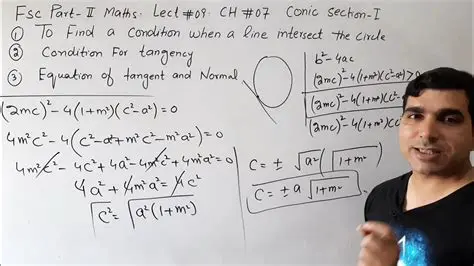 Fsc Part-II Maths: Lect #09: CH #07 Conic Section-I
① To Find a Condition when a line intersect the circle
② Condition For tangency
③ Equation of tangent and Normal
b²-4ac
(2mc)²-4(1+m²)(c²-a²)>0
(2mc)²-4(1+m²)(c²-a²)
(2mc)²-4(1+m²)(c²
(2mc)²-4(1+m²)(c²-a²)=0
4m²c²-4(c²-a²+m²c²-m²a²)=0
4m²c²-4c²+4a²-4m²c²+4m²a²=0
4a²+4m²a²=4c²
c²=a²(1+m²)
c=±√a² √1+m²
c=±a√1+m²